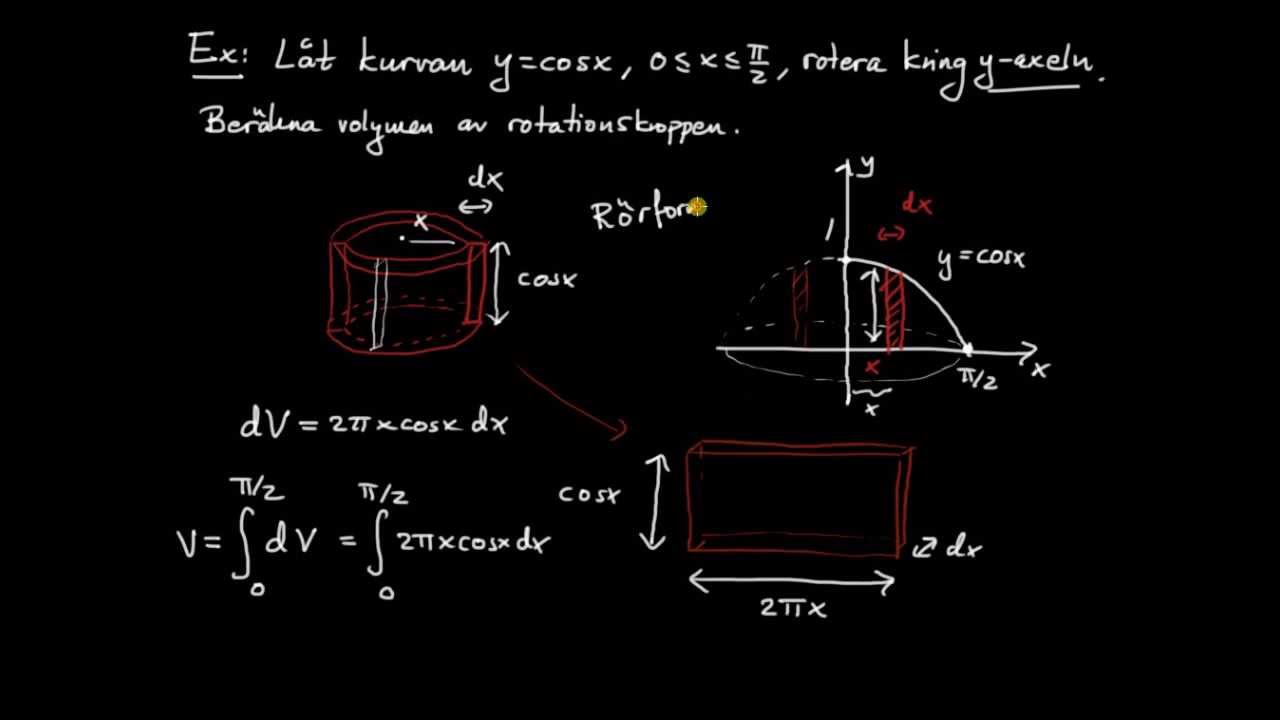 Ex: Låt kurvan y=cosx, 0≤x≤π/2, rotera kring y-axeln.
Beräkna volymen av rotationskroppen.
dx
x
cosx
Rörfor
y
dx
1
y=cosx
x
x
π/2
x
dV = 2πxcosx dx
V = ∫₀^(π/2) dV = ∫₀^(π/2) 2πxcosx dx
cosx
dx
2πx